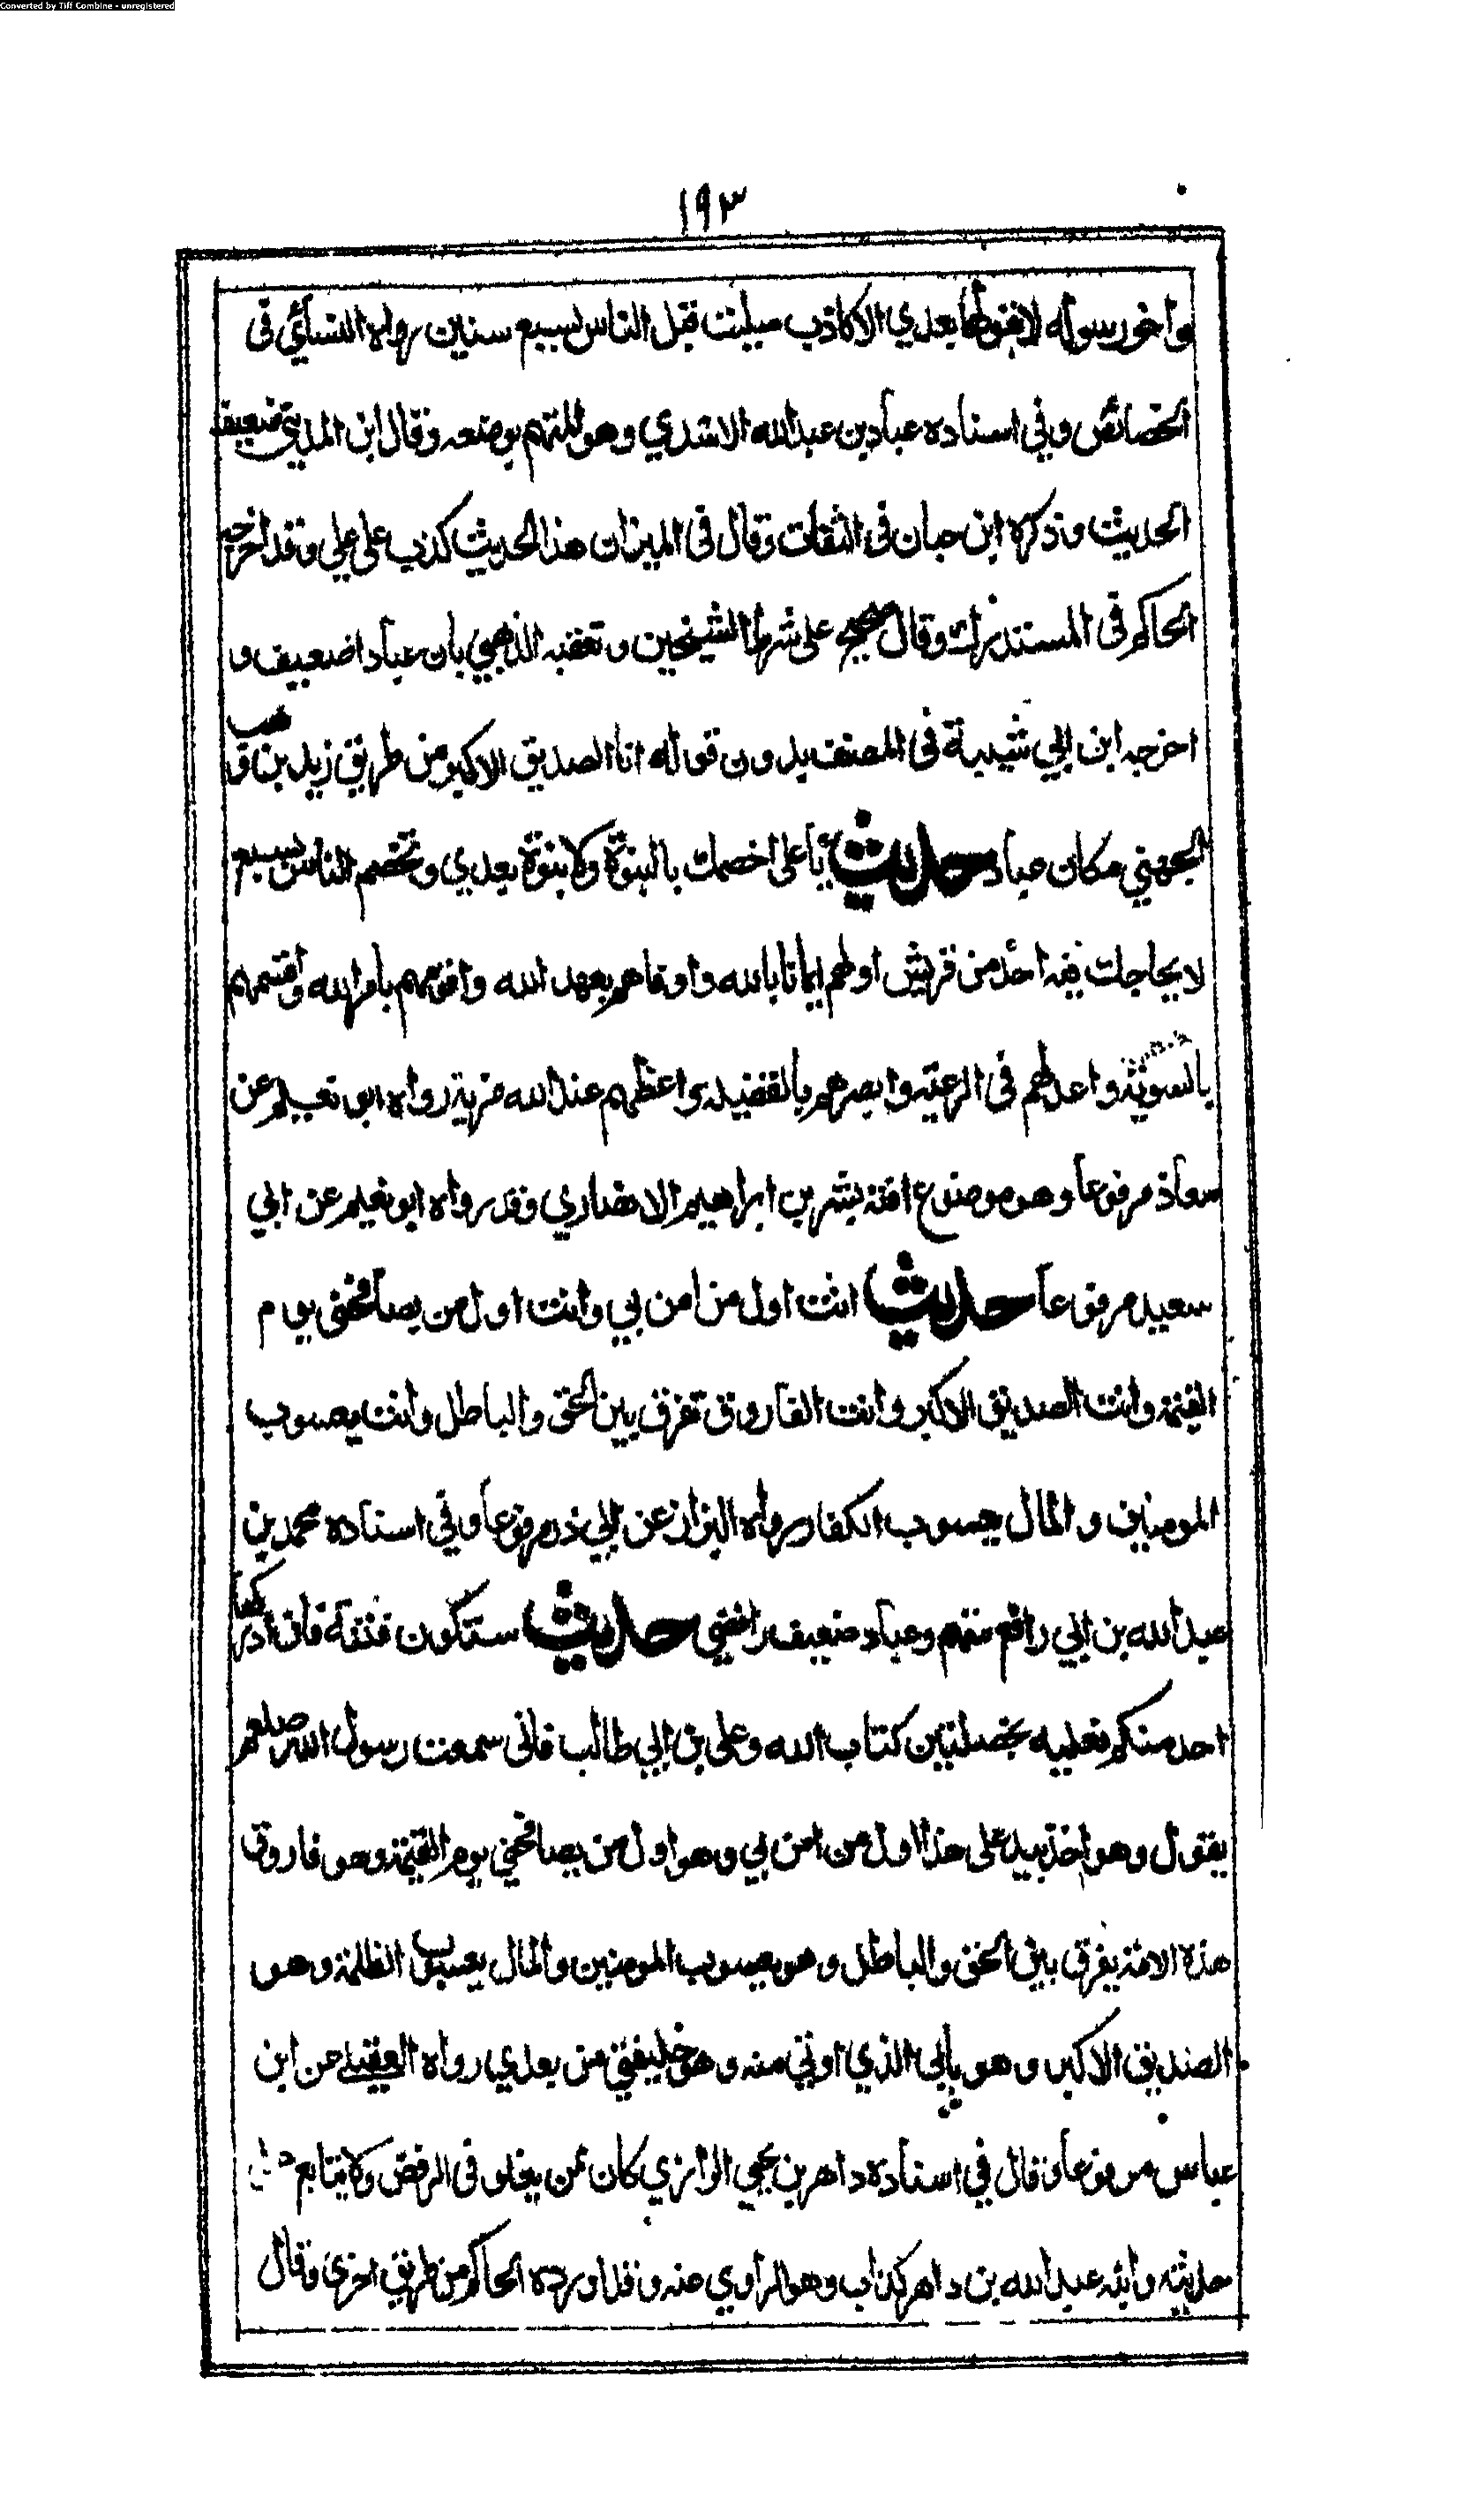 Converted by Tiff Combine - unregistered
١٩٣
واخو رسوله لا يقولها بعدي الا كاذب صليت قبل الناس لسبع سنين رواه النسائي فى
الخصائص وفي اسناده عباد بن عبدالله الاسدي وهو المتهم بوضعه وقال ابن المديني ضعيف
الحديث وذكره ابن حبان فى الثقات وقال فى الميزان هذا الحديث كذب على علي وقد اخرجه
الحاكم فى المستدرك وقال صحيح على شرط الشيخين وتعقبه الذهبي بان عبادا ضعيف و
اخرجه ابن ابي شيبة فى المصنف بدون قوله انا الصديق الاكبر من طريق زيد بن وهب
الجهني مكان عباد حديث يا على اخصمك بالنبوة ولا نبوة بعدي وتخصم الناس بسبع
لا يحاجك فيه احد من قريش اولهم ايمانا بالله واوفاهم بعهد الله واقومهم بامر الله واقسمهم
بالسوية واعدلهم فى الرعية وابصرهم بالقضيه واعظمهم عند الله مزية رواه ابو نعيم عن
معاذ مرفوعا وهو موضوع افته بشر بن ابراهيم الانصاري وقد رواه ابو نعيم عن ابي
سعيد مرفوعا حديث انت اول من امن بي وانت اول من يصافحنى يوم
القيمة وانت الصديق الاكبر وانت الفاروق تفرق بين الحق والباطل وانت يعسوب
المومنين والمال يعسوب الكفار رواه البزار عن ابي ذر مرفوعا وفي اسناده محمد بن
عبد الله بن ابي رافع متهم وعباد ضعيف رافضي حديث ستكون فتنة فان ادركها
احد منكم فعليه بخصلتين كتاب الله وعلى بن ابي طالب فانى سمعت رسول الله صلعم
يقول وهو اخذ بيد على هذا اول من امن بي وهو اول من يصافحني يوم القيمة وهو فاروق
هذه الامة يفرق بين الحق والباطل وهو يعسوب المومنين والمال يعسوب الظلمة وهو
الصديق الاكبر وهو بابى الذي اوتي منه وهو خليفتى من بعدي رواه العقيلي عن ابن
عباس مرفوعا وقال في اسناده داهر بن يحيى الرازي كان ممن يغلو فى الرفض ولا يتابع
حديثه وابنه عبد الله بن داهر كذاب وهو الراوي عنه وقد اورده الحاكم من طريق اخرى وقال